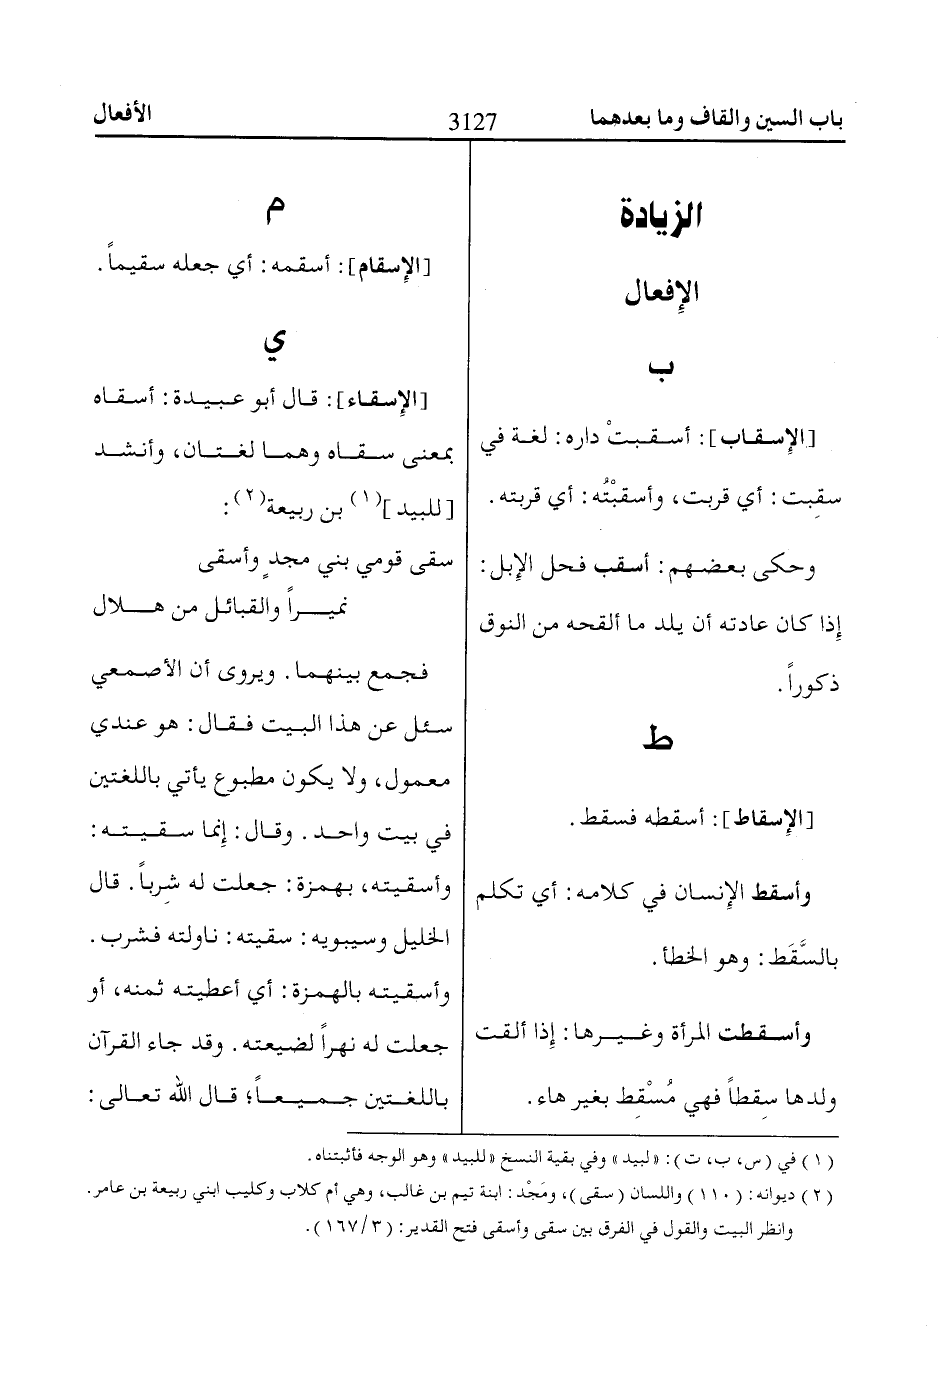 باب السين والقاف وما بعدهما
3127
الأفعال
الزيادة
الإفعال
ب
[الإسقاب]: أسقبتْ داره: لغة في
سقبت: أي قربت، وأسقبْتُه: أي قربته.
وحكى بعضهم: أسقب فحل الإبل:
إذا كان عادته أن يلد ما ألقحه من النوق
ذكوراً.
ط
[الإسقاط]: أسقطه فسقط.
وأسقط الإنسان في كلامه: أي تكلم
بالسَّقَط: وهو الخطأ.
وأسقطت المرأة وغيرها: إذا ألقت
ولدها سِقطاً فهي مُسْقِط بغير هاء.
م
[الإسقام]: أسقمه: أي جعله سقيماً.
ي
[الإسقاء]: قال أبو عبيدة: أسقاه
بمعنى سقاه وهما لغتان، وأنشد
[للبيد](١) بن ربيعة(٢):
سقى قومي بني مجدٍ وأسقى
نميراً والقبائل من هلال
فجمع بينهما. ويروى أن الأصمعي
سئل عن هذا البيت فقال: هو عندي
معمول، ولا يكون مطبوع يأتي باللغتين
في بيت واحد. وقال: إنما سقيته:
وأسقيته، بهمزة: جعلت له شِرباً. قال
الخليل وسيبويه: سقيته: ناولته فشرب.
وأسقيته بالهمزة: أي أعطيته ثمنه، أو
جعلت له نهراً لضيعته. وقد جاء القرآن
باللغتين جميعاً؛ قال الله تعالى:
(١) في (س، ب، ت): «لبيد» وفي بقية النسخ «للبيد» وهو الوجه فأثبتناه.
(٢) ديوانه: (١١٠) واللسان (سقى)، ومَجْد: ابنة تيم بن غالب، وهي أم كلاب وكليب ابني ربيعة بن عامر.
وانظر البيت والقول في الفرق بين سقى وأسقى فتح القدير: (٣/١٦٧).